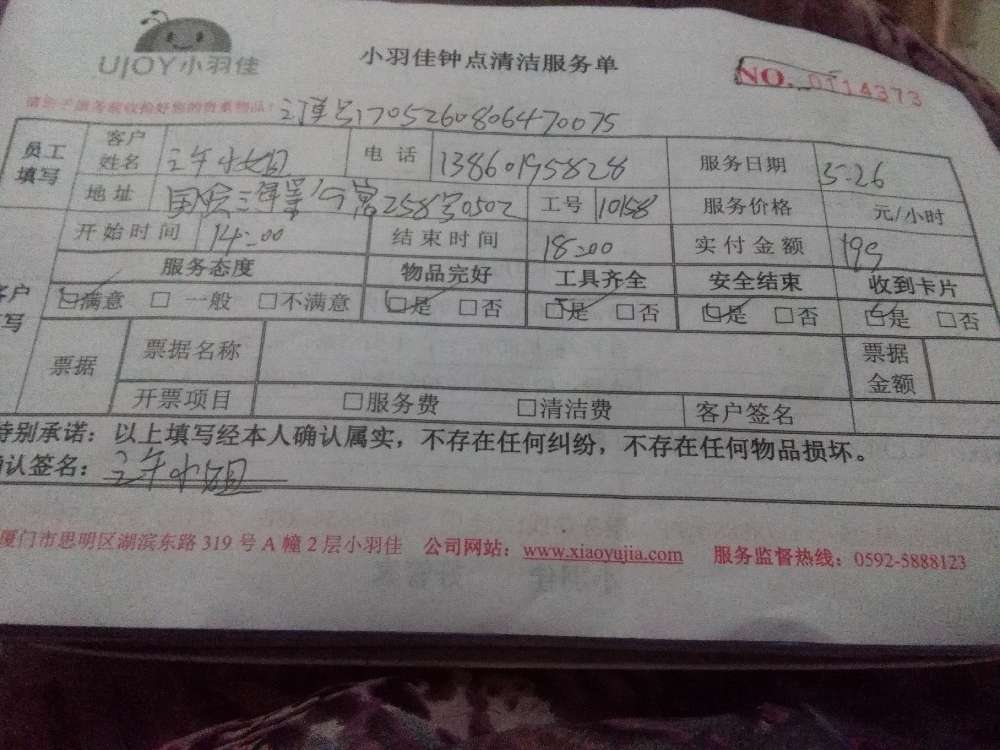 UJOY小羽佳
小羽佳钟点清洁服务单
NO. 0114373
请您于服务前收捡好您的贵重物品!
订单号170526080647 0075
员工填写 客户姓名 小姐 电话 13860195828 服务日期 5-26
地址 258号0502 工号 10158 服务价格 元/小时
开始时间 14:00 结束时间 18:00 实付金额 199
服务态度 物品完好 工具齐全 安全结束 收到卡片
☑满意 □一般 □不满意 ☑是 □否 ☑是 □否 ☑是 □否 ☑是 □否
票据 票据名称 票据金额
开票项目 □服务费 □清洁费 客户签名
特别承诺：以上填写经本人确认属实，不存在任何纠纷，不存在任何物品损坏。
确认签名： 小姐
厦门市思明区湖滨东路 319 号 A 幢 2 层小羽佳 公司网站：www.xiaoyujia.com 服务监督热线：0592-5888123